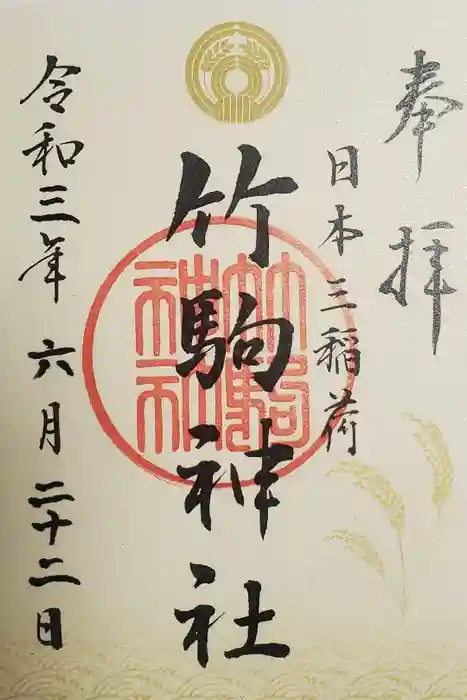 奉拝
日本三稲荷
竹駒神社
竹駒
神社
令和三年 六月 二十二日